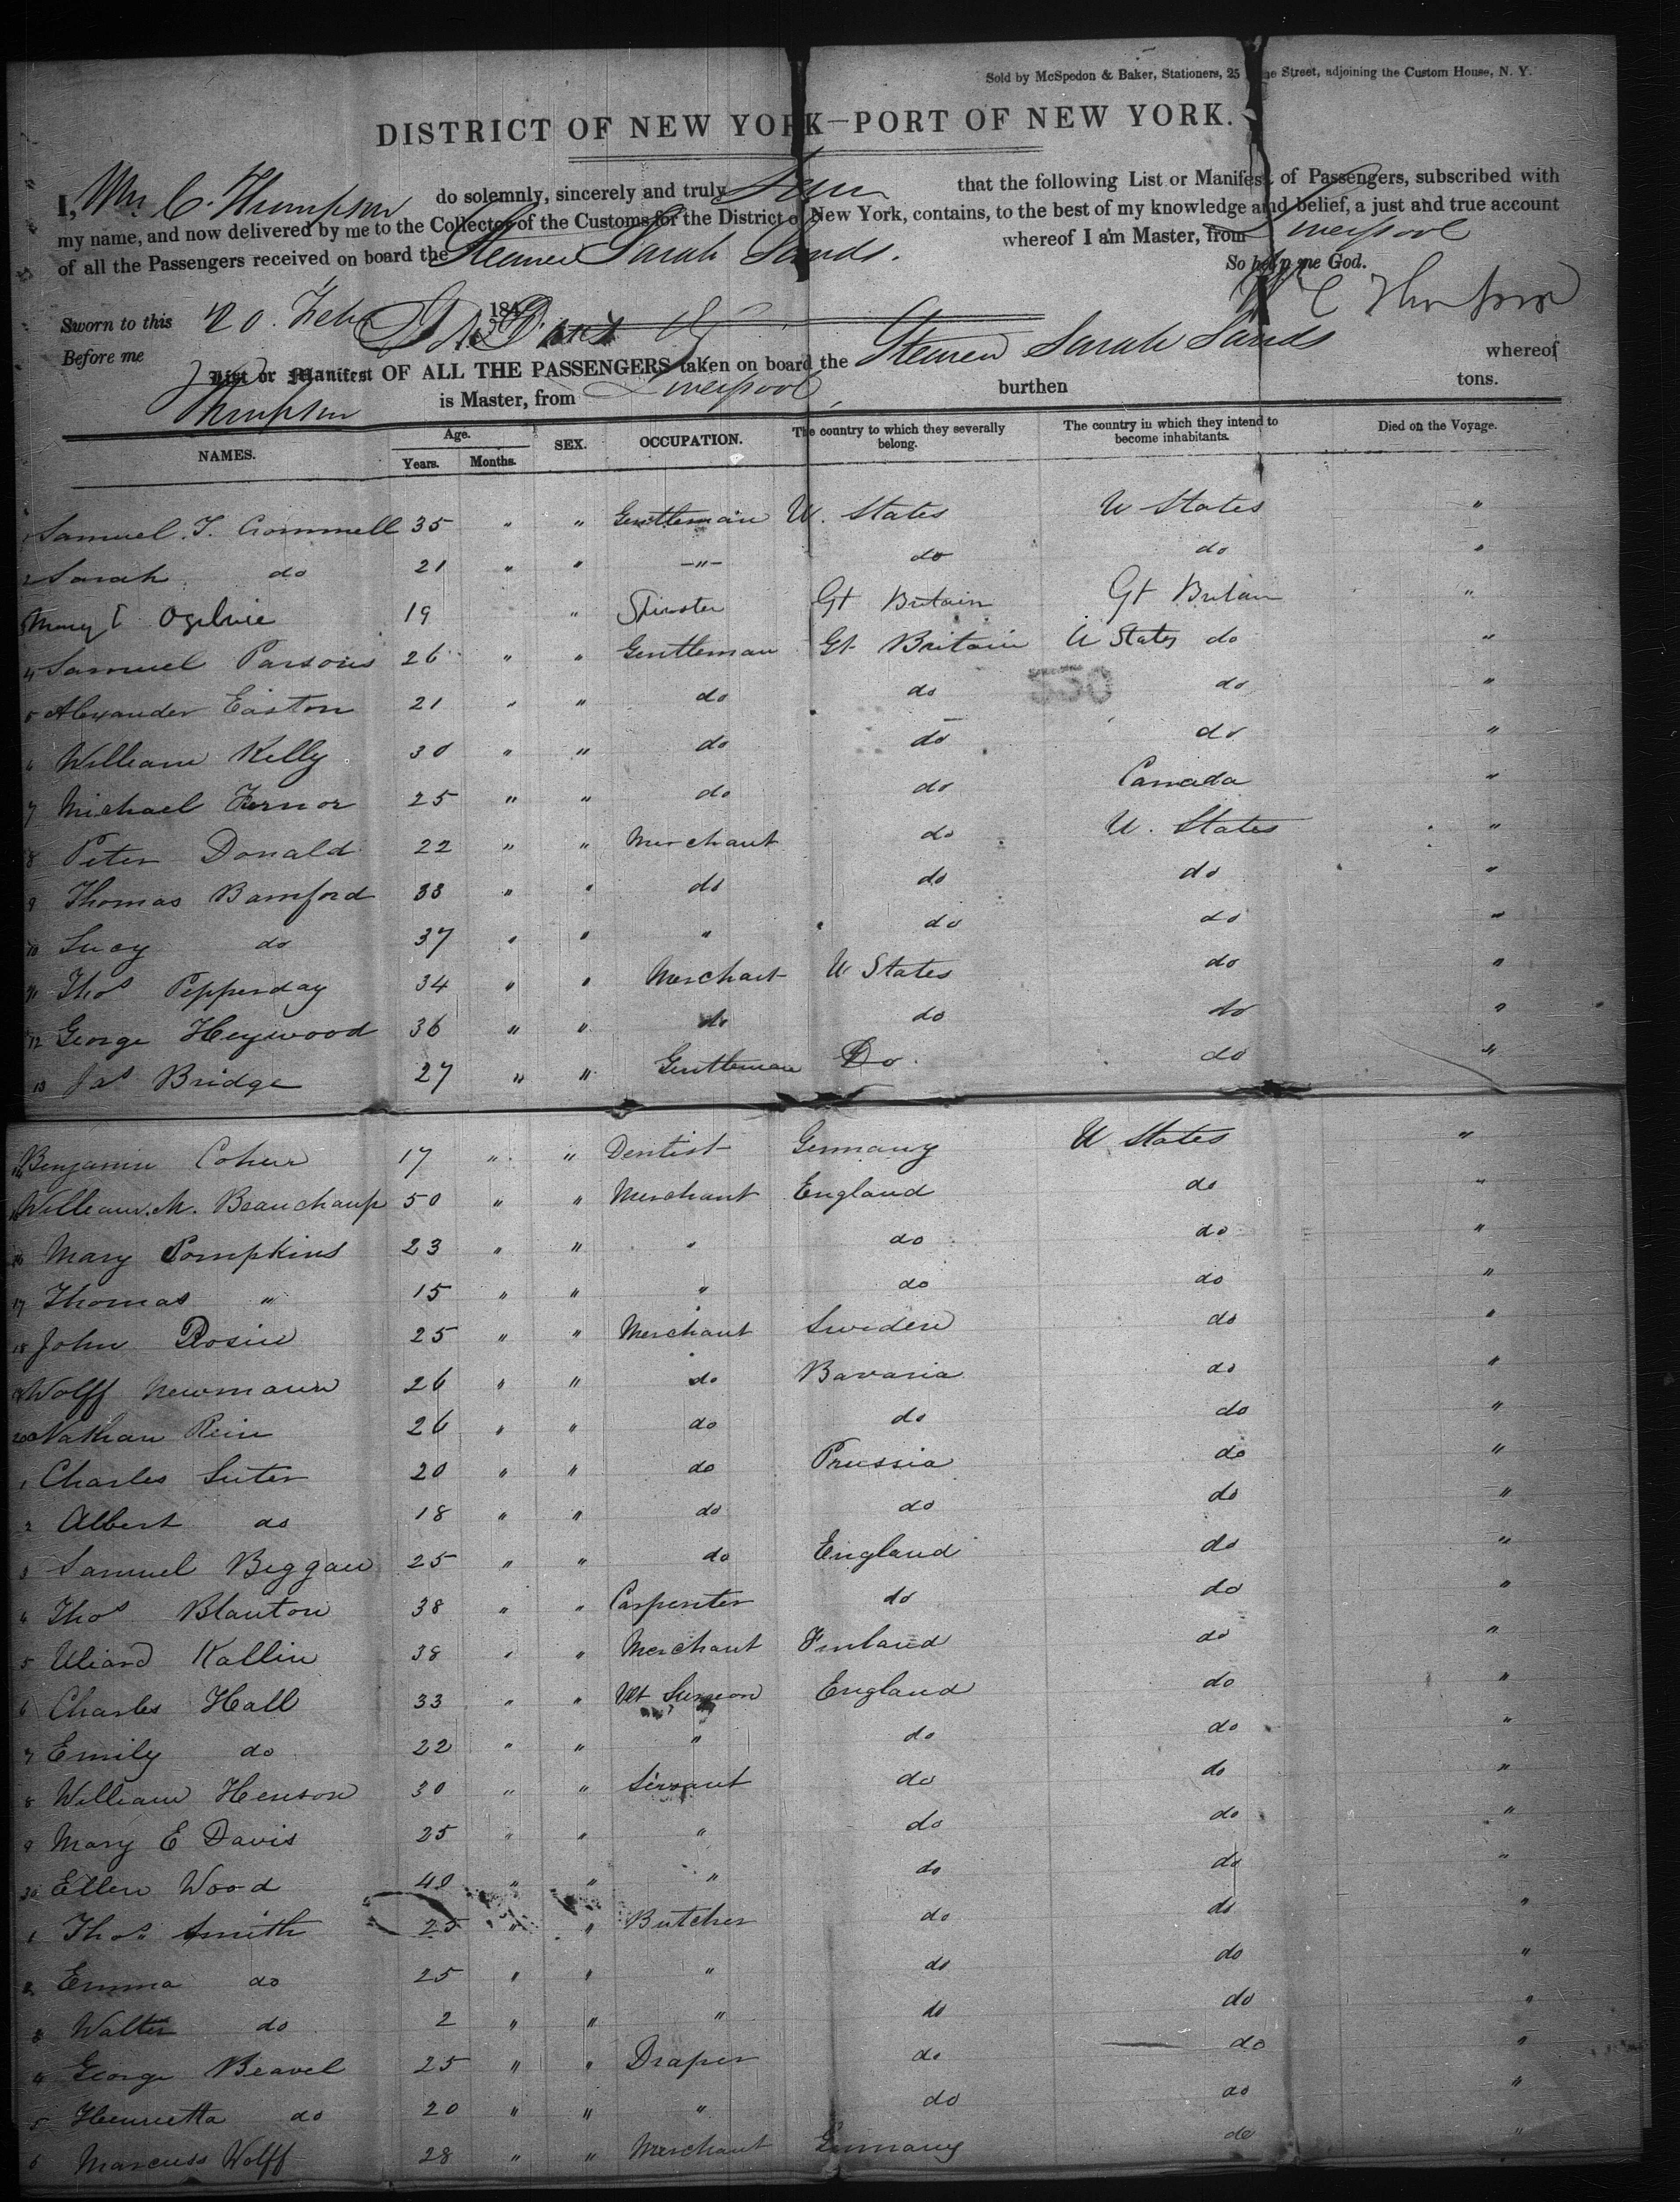 Sold by McSpedon & Baker, Stationers, 25 Street, adjoining the Custom House, N. Y.
DISTRICT OF NEW YORK—PORT OF NEW YORK.
I, Wm C. Thompson do solemnly, sincerely and truly that the following List or Manifest of Passengers, subscribed with
my name, and now delivered by me to the Collector of the Customs for the District of New York, contains, to the best of my knowledge and belief, a just and true account
of all the Passengers received on board the Steamer Sarah Sands. whereof I am Master, from Liverpool
So help me God.
Sworn to this 20. Feby 184 W C Thompson
Before me
List or Manifest OF ALL THE PASSENGERS taken on board the Steamer Sarah Sands whereof
Thompson is Master, from Liverpool burthen tons.
NAMES. Age. Years. Months. SEX. OCCUPATION. The country to which they severally belong. The country in which they intend to become inhabitants. Died on the Voyage.
1 Samuel. T. Crommell 35 " " Gentleman U. States U States "
2 Sarah do 21 " " —"— do do "
3 Mary E Ogilvie 19 " Spinster Gt Britain Gt Britain "
4 Samuel Parsons 26 " " Gentleman Gt Britain U States do "
5 Alexander Easton 21 " " do do do "
550
6 William Kelly 30 " " do do do "
7 Michael 25 " " do do Canada "
8 Peter Donald 22 " " Merchant do U. States "
9 Thomas Bamford 33 " " do do do "
10 Lucy do 37 " " " do do "
11 Thos Pepperday 34 " " Merchant U States do "
12 George Heywood 36 " " do do do "
13 Jas Bridge 27 " " Gentleman Do do "
14 Benjamin Cohen 17 " " Dentist Germany U States "
15 William. M. Beauchamp 50 " " Merchant England do "
16 Mary Pompkins 23 " " " do do "
17 Thomas " 15 " " " do do "
18 John Rosin 25 " " Merchant Sweden do "
19 Wolff Newmann 26 " " do Bavaria do "
20 Nathan Rein 26 " " do do do "
1 Charles Suter 20 " " do Prussia do "
2 Albert do 18 " " do do do "
3 Samuel Beggan 25 " " do England do "
4 Thos Blanton 38 " " Carpenter do do "
5 Uliard Kallin 38 " " Merchant Finland do "
6 Charles Hall 33 " " Vet Surgeon England do "
7 Emily do 22 " " " do do "
8 William Henson 30 " " Servant do do "
9 Mary E Davis 25 " " " do do "
30 Ellen Wood 40 " " " do do "
1 Thos. Smith 25 " " Butcher do do "
2 Emma do 25 " " " do do "
3 Walter do 2 " " " do do "
4 George Beavel 25 " " Draper do do "
5 Henrietta do 20 " " " do do "
6 Marcuss Wolff 28 " " Merchant Germany do "